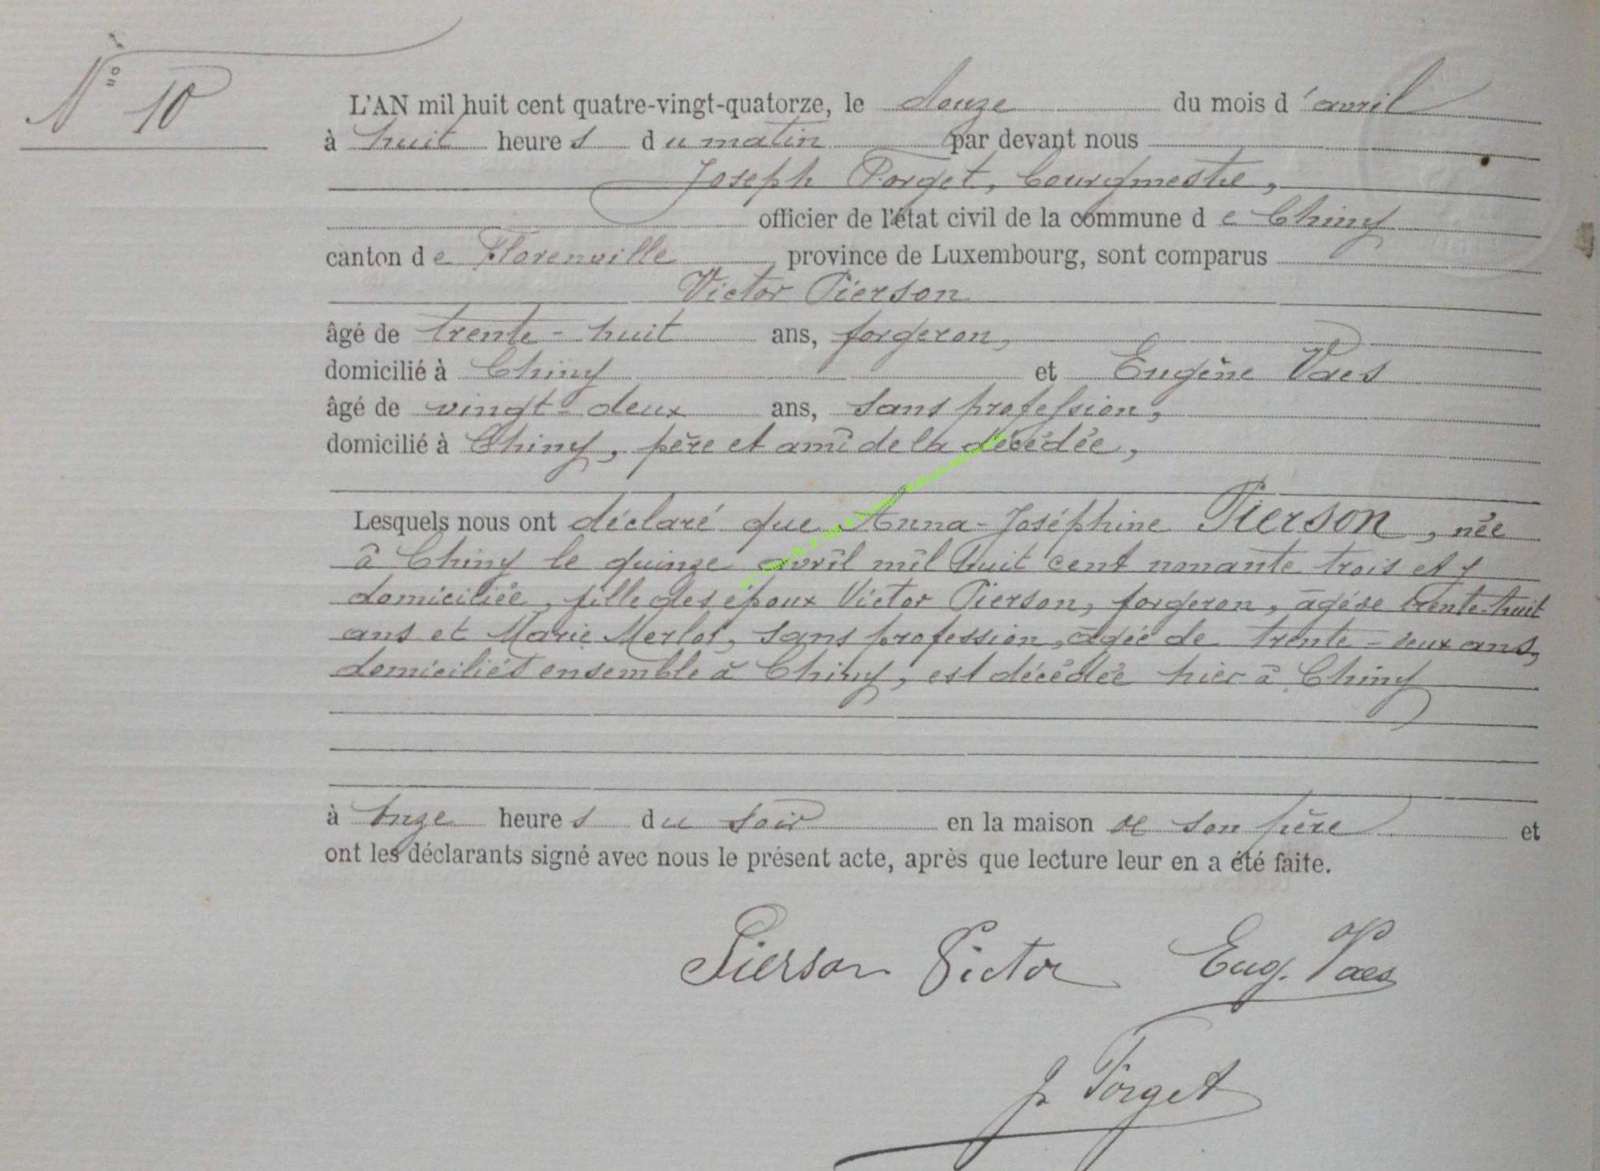 N° 10
L'AN mil huit cent quatre-vingt-quatorze, le douze du mois d'avril
à huit heures du matin par devant nous
Joseph Forget, bourgmestre,
officier de l'état civil de la commune de Chiny
canton de Florenville, province de Luxembourg, sont comparus
Victor Pierson
âgé de trente-huit ans, forgeron,
domicilié à Chiny et Eugène Vaes
âgé de vingt-deux ans, sans profession,
domicilié à Chiny, père et ami de la décédée,
Lesquels nous ont déclaré que Anna-Joséphine Pierson, née
à Chiny le quinze avril mil huit cent nonante trois et y
domiciliée, fille des époux Victor Pierson, forgeron, âgé de trente-huit
ans et Marie Merlot, sans profession, âgée de trente-deux ans,
domiciliés ensemble à Chiny, est décédée hier à Chiny
à onze heures du soir en la maison de son père et
ont les déclarants signé avec nous le présent acte, après que lecture leur en a été faite.
Pierson Victor Eug. Vaes
J. Forget